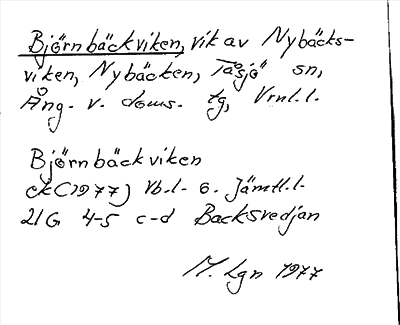 Björnbäckviken, vik av Nybäcks-
viken, Nybäcken, Tåsjö sn,
Ång. v. doms. tg, Vrnl.l.
Björnbäckviken
ek (1977) Vb.l - o. Jämtl.l.
21G 4-5 c-d Backsvedjan
M. Lgn 1977